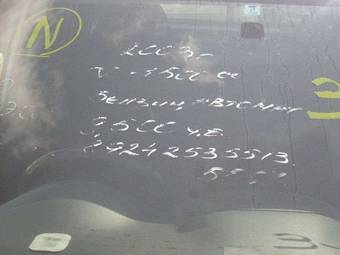 N
2003-
V-1500 см
Бензин автомат
3500 у.е
89242535513